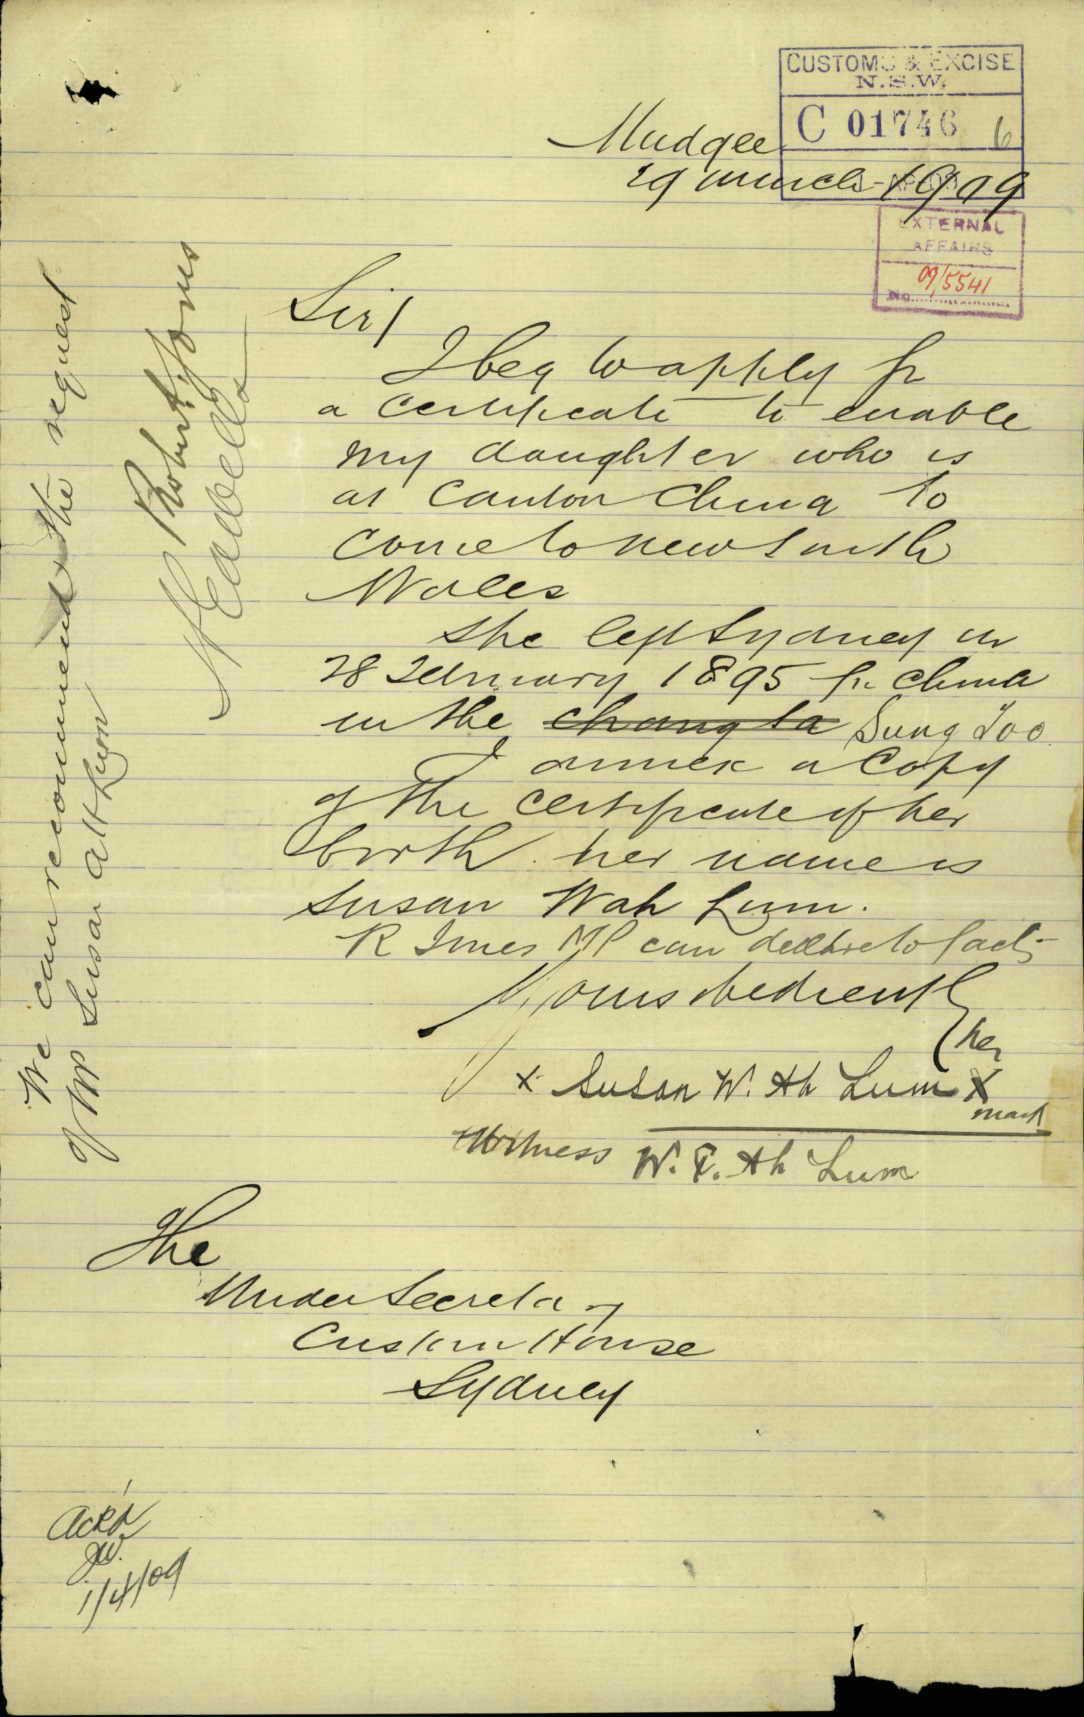 CUSTOMS & EXCISE
N.S.W.
C 01746 6
Mudgee
29 March 1909
EXTERNAL
AFFAIRS
No. 09/5541
Sir/
I beg to apply for
a certificate to enable
my daughter who is
at Canton China to
come to new South
Wales
She left Sydney on
28 February 1895 for China
in the Changsa Sung Foo
I annex a copy
of the certificate of her
birth. her name is
Susan Wah Lum.
R Jones MP can declare to facts
Yours obediently
her
x Susan W. Ah Lum X
mark
Witness W. F. Ah Lum
The
Under Secretary
Custom House
Sydney
We can recommend the request
of Mrs Susan Ah Lum
Robert Jones
Ack'd
JW.
1/4/09